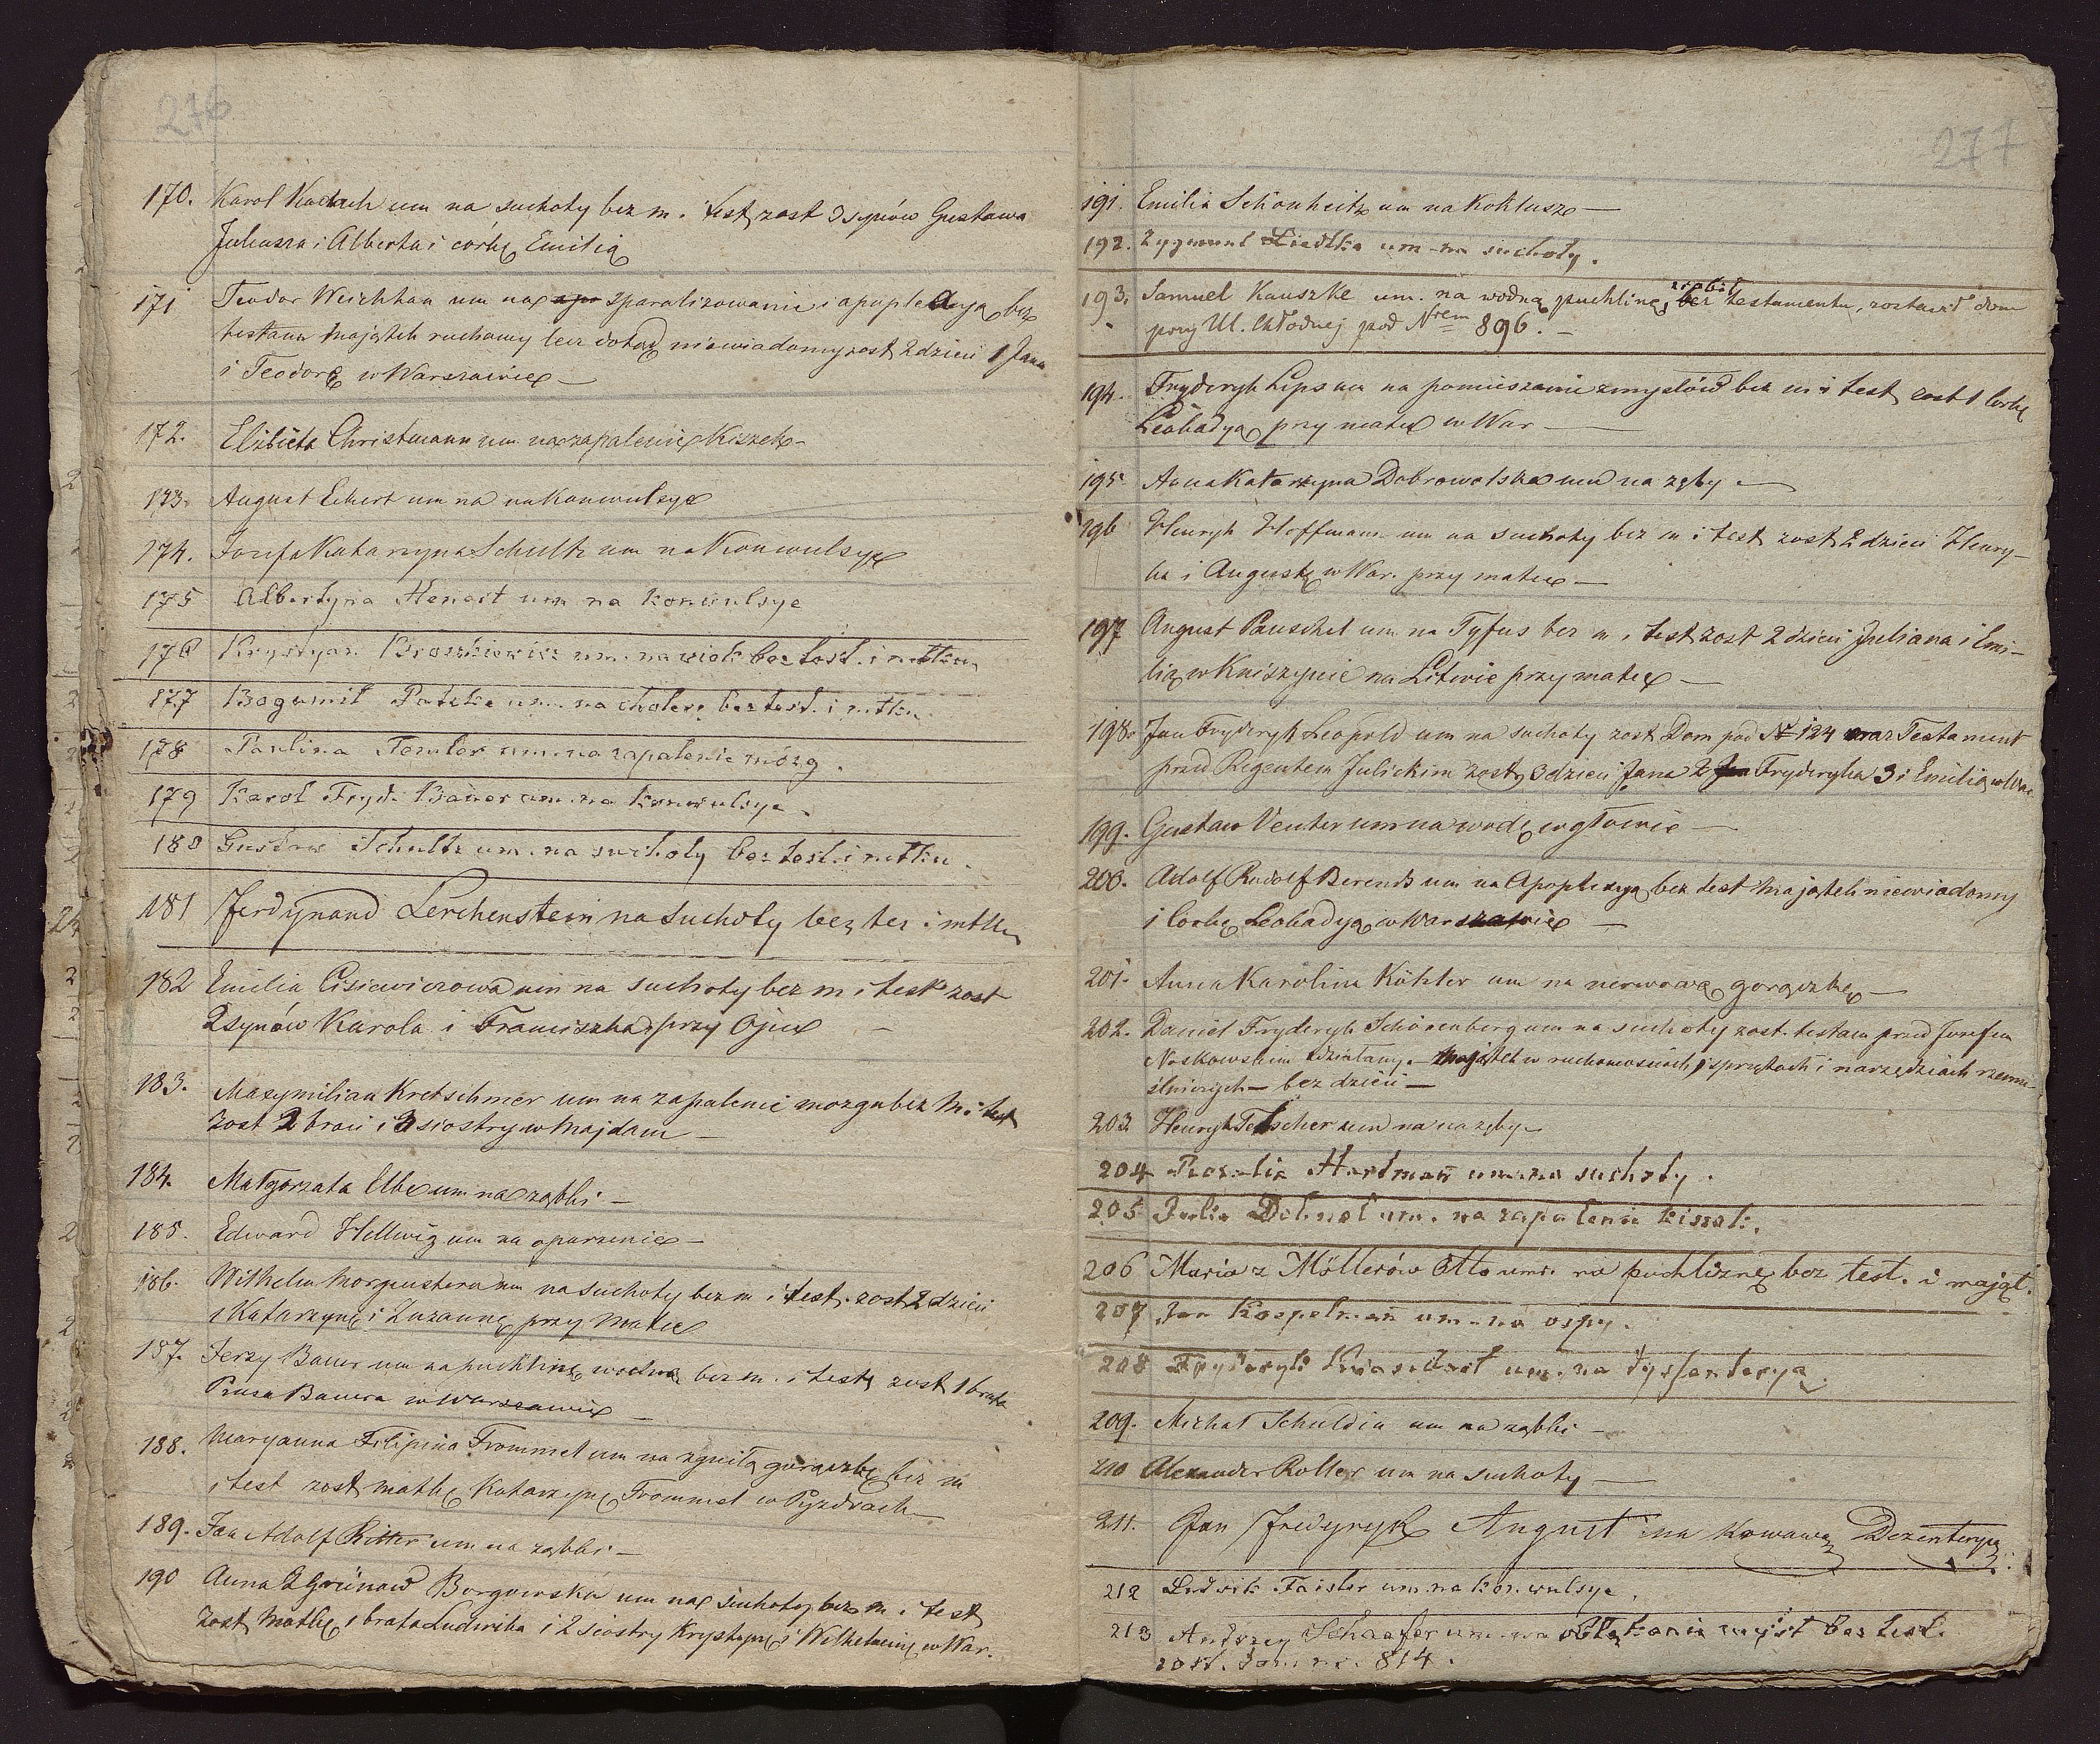 276
170. Karol Kadach um na suchoty bez m. i test zost 3 synów Gustawa
Juliusza i Alberta i córkę Emilią
171 Teodor Weichhan um na apo sparaliżowanie i apoplexyą bez
testam majątek ruchomy lecz dotąd niewiadomy zost 2 dzieci 1 Jana
i Teodorę w Warszawie
172. Elżbieta Christmann um na zapalenie Kiszek
173. August Eckert um na na Konwulsye
174. Józefa Katarzyna Schultz um na Konwulsye
175 Albertyna Henert um na konwulsye
176 Krystyan um. na wiek bez test. i mtku
177 Bogumił Patzke um. na cholerę bez test. i mtku
178 Paulina Temler um. na zapalenie mózg.
179 Karol Fryd. Bauer um. na konwulsye.
180 Gustaw Schultz um. na suchoty bez test. i mtku.
181 Ferdynand Lerchenstein na suchoty bez tes i mtku
182 Emilia Cisiewiczowa um na suchoty bez m i test zost
2 synów Karola i Franciszka przy Ojcu
183. Maxymilian Kretschmer um na zapalenie mozgu bez m. i test
zost 2 braci i 3 siostry w Majdanu
184. Małgorzata Elbe um na ząbki
185. Edward Hellwig um na oparzenie
186. Wilhelm Morgenstern um na suchoty bez m i test. zost 2 dzieci
1 Katarzynę i Zuzannę przy Matce
187. Jerzy Bauer um na puchlinę wodną bez m. i testę zost 1 brata
Bauera w Warszawie
188. Maryanna Filipina Frommel um na zgniłą gorączkę bez m
i test zost matkę Katarzynę Frommel w Pyzdrach
189. Jan Adolf Ritter um na ząbki
190 Anna z Grünów Borgowska um na suchoty bez m i test
zost Matkę 1 brata Ludwika i 2 siostry Krystynę i Wilhelminę w War.
277
191. Emilia Schönheitz um na Koklusz
192. Zygmunt Liedtke um na suchoty.
193. Samuel Kauszke um. na wodną puchlinę, zrobił bez testamentu, zostawił dom
przy Ul. Chłodnej pod Nrem 896.
194. Fryderyk Leps um na pomieszanie zmysłów bez m i test zost 1 Corkę
Leokadyą przy matce w War
195 Anna Katarzyna Dobrowolska um na zęby
196 Henryk Hoffmann um na suchoty bez m i test zost 2 dzieci Henry-
ka i Augustę w War. przy matce
197 August Pauschel um na Tyfus bez m i test zost 2 dzieci Juliana i Emi-
lią w Kniszynie na Litwie przy matce
198. Jan Fryderyk Leopold um na suchoty zost Dom pod No 124 oraz Testament
przed Regentem Julickim zost 3 dzieci Jana 2 Jan Fryderyka 3 i Emilią w War
199. Gustaw Venter um na wodę w głowie
200. Adolf Rudolf Berends um na Apoplexyą bez test majątek niewiadomy
1 Corkę Leokadyą w Warszawie
201. Anna Karolina Köhler um na nerwową gorączkę
202. Daniel Fryderyk Schönenberg um na suchoty zost. testam przed Jozefem
Noskowskim zdziałany. majątek w ruchomościach, sprzętach i narzędziach rzemie-
ślniczych bez dzieci
203 Henryk Telscher um na na zęby
204 Rozalia Hartman um na suchoty.
205 Julia Dehnel um. na zapalenie kiszek.
206 Maria z Möllerów Otto um. na puchliznę bez test. i mająt.
207 Jan Kospelman um. na ospy.
208 Fryderyk um. na dyssenteryą.
209. Michał Schuldin um na ząbki
210 Alexander Roller um na suchoty
211. Jan Fryderyk August na Krwawą Dezenteryą
212 Ludwik Faister um. na konwulsye
213 Andrzey Schaefer um. na obłąkanie myśl bez test.
zost. dom nr. 814.